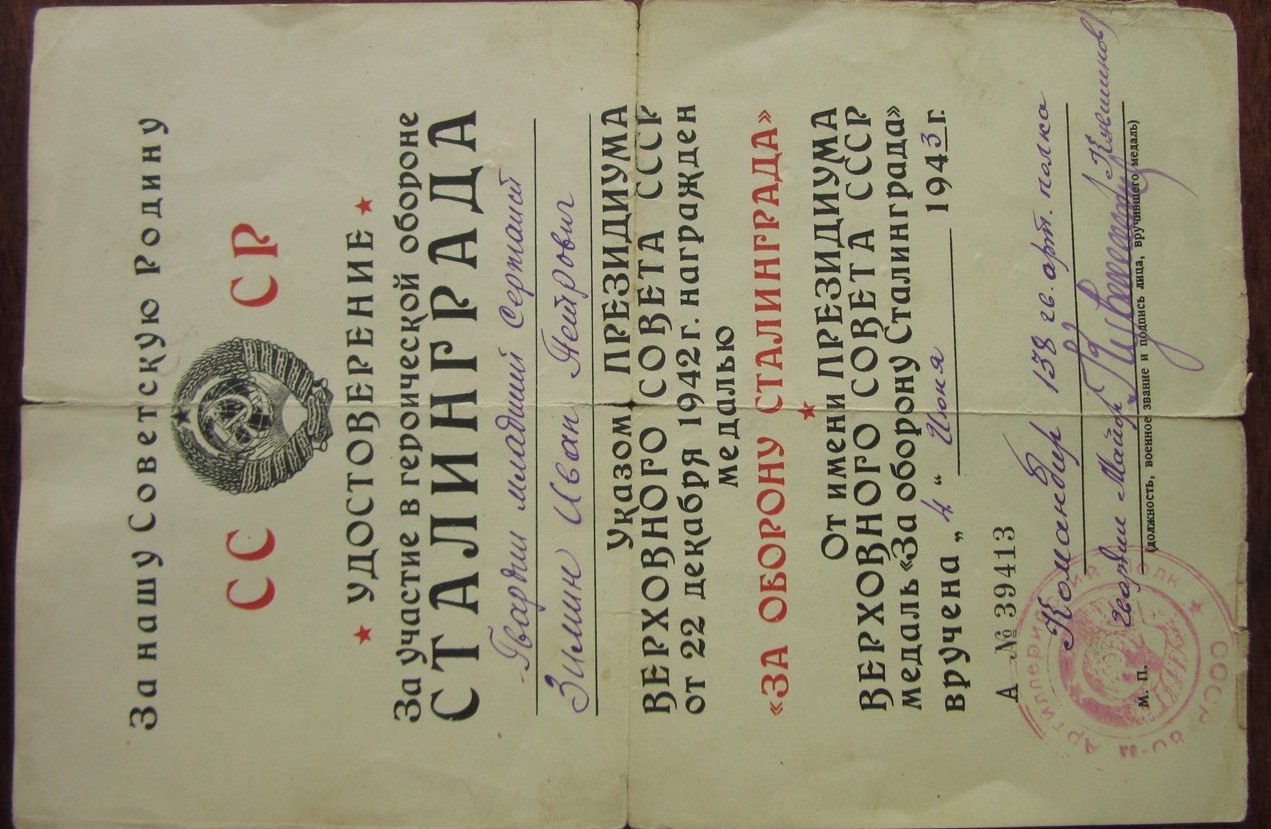 За нашу Советскую Родину
СС СР
УДОСТОВЕРЕНИЕ
За участие в героической обороне
СТАЛИНГРАДА
Гвардии младший Сержант
Зимин Иван Петрович
Указом ПРЕЗИДИУМА
ВЕРХОВНОГО СОВЕТА СССР
от 22 декабря 1942 г. награжден
медалью
«ЗА ОБОРОНУ СТАЛИНГРАДА»
От имени ПРЕЗИДИУМА
ВЕРХОВНОГО СОВЕТА СССР
медаль «За оборону Сталинграда»
вручена „4“ Июня 1943 г.
А № 39413
Командир 138 гв. арт. полка
гвардии Майор
М. П. (должность, военное звание и подпись лица, вручившего медаль)
СССР